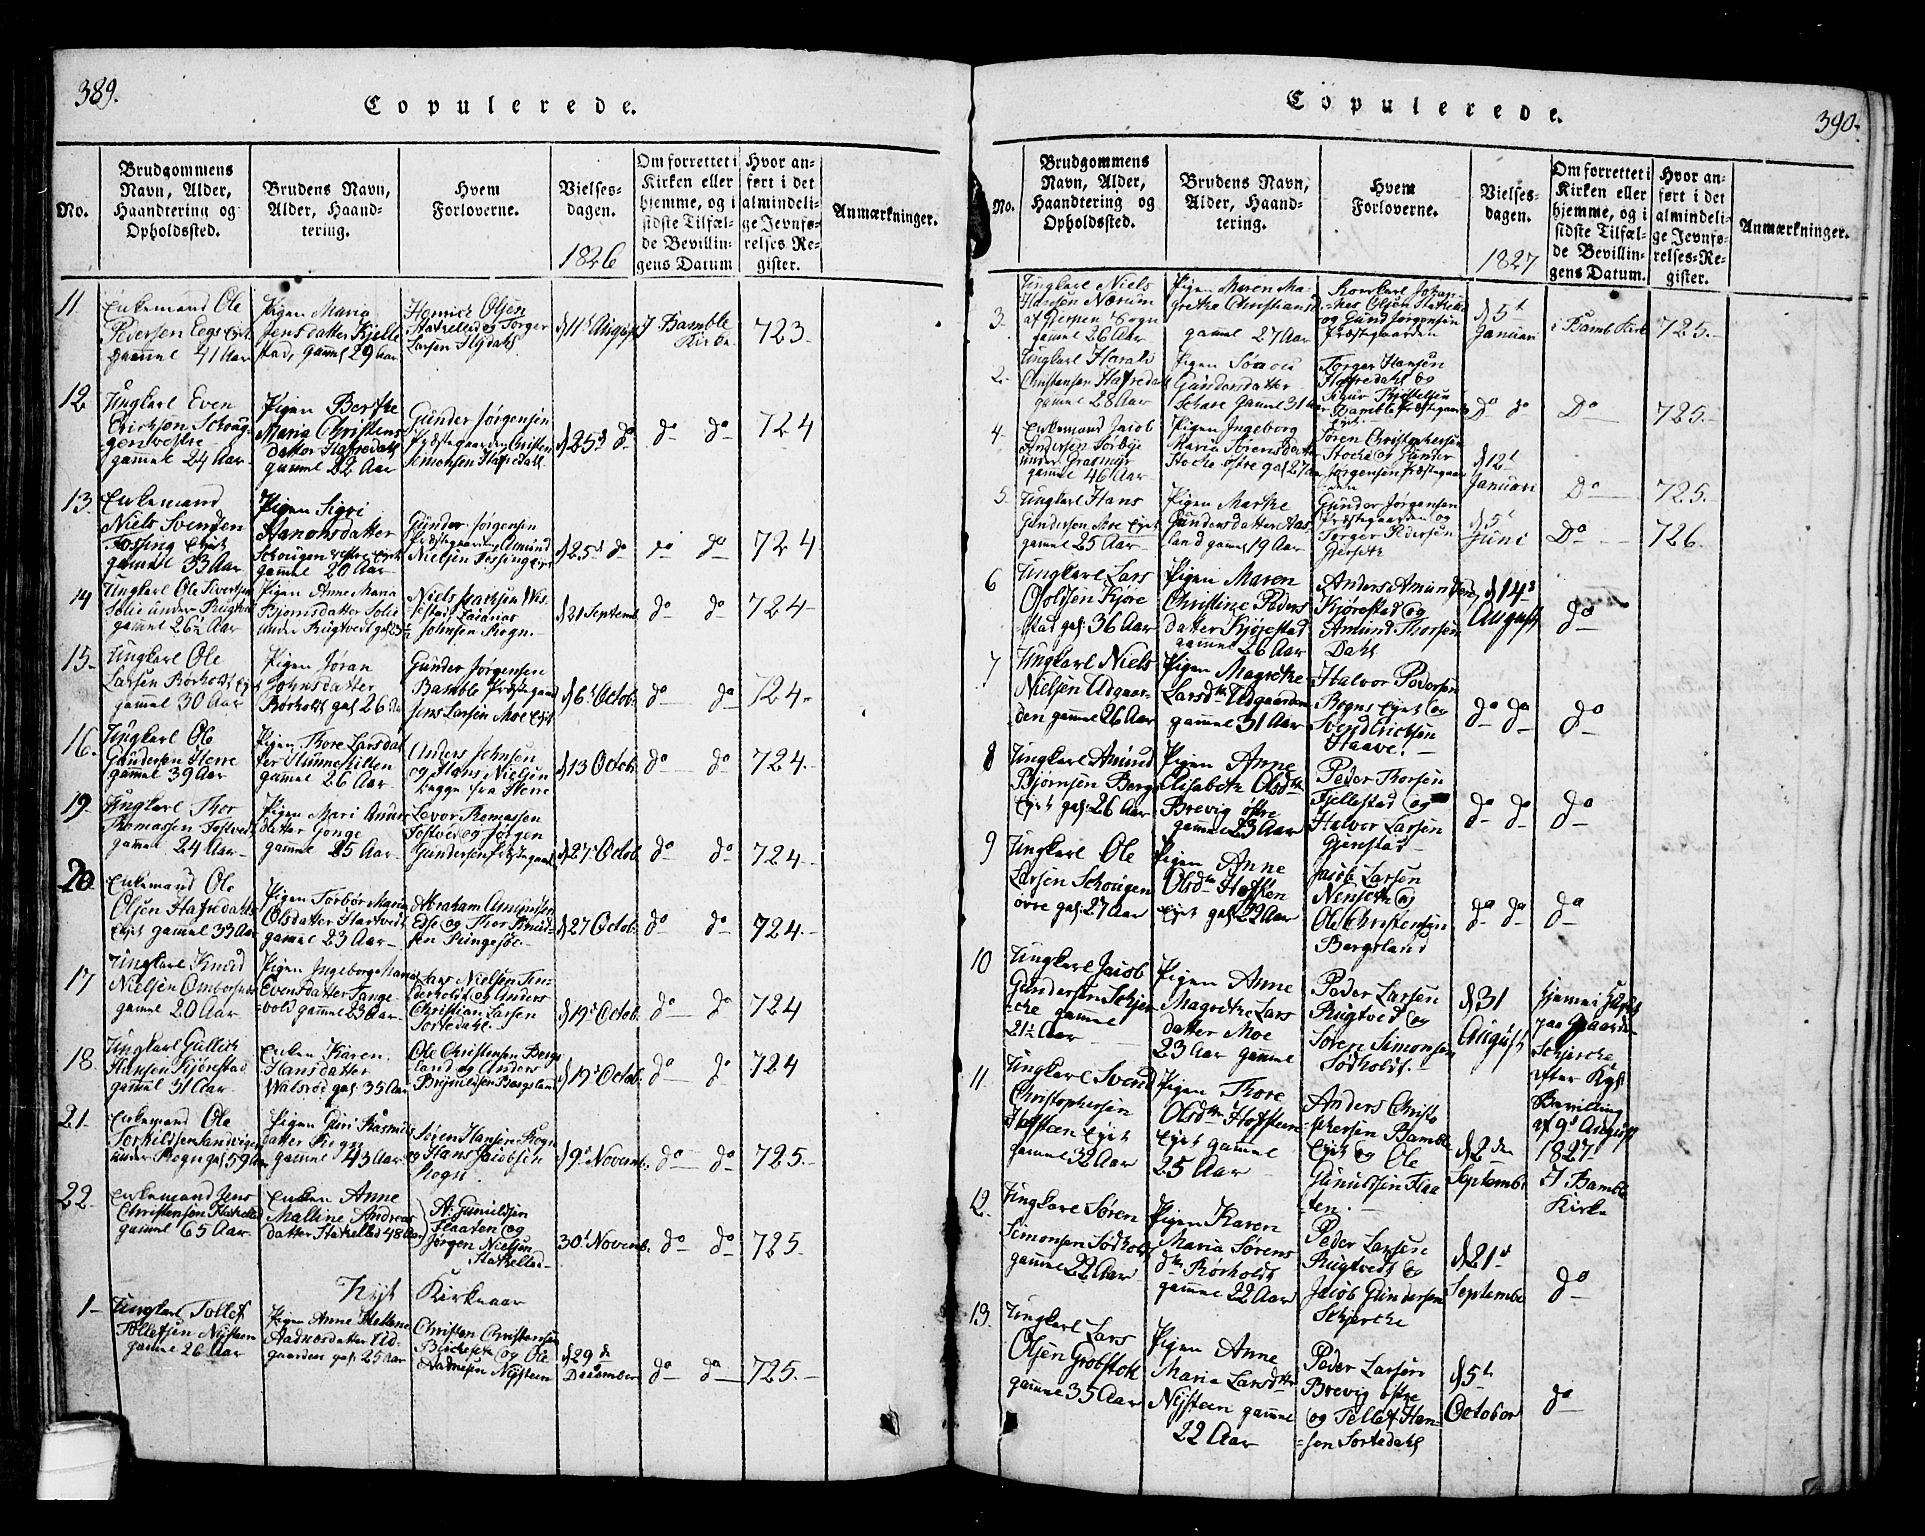 389.
Copulerede.
No.
Brudgommens
Navn, Alder,
Haandtering og
Opholdssted.
Brudens Navn,
Alder, Haand-
tering.
Hvem
Forloverne.
Vielses-
dagen.
1826
Om forrettet i
Kirken eller
hjemme, og i
sidste Tilfæl-
de Bevillin-
gens Datum
Hvor an-
ført i det
almindeli-
ge Jevnfø-
relses Re-
gister.
Anmærkninger.
11
Enkemand Ole
Pedersen Eegs Eyet
gammel 41 Aar
Pigen Maria
Jensdatter Kjelle
stad, gamel 29 Aar
Henrich Olsen
Stathelle og Torger
Larsen
d 11t August
I Bamble
Kirke
723.
12
Ungkarl Even
Erichsen Schoug-
gen vestre
gammel 24 Aar
Pigen Berthe
Maria Christens
datter Hafredahl
gammel 22 Aar
Gunder Jørgensen
Præstegaarden Christen
Simonsen Hafredahl
d 25d do
do do
724
13.
Enkemand
Niels Svendsen
Fossing Eyet
gammel 33 Aar
Pigen Sigri
datter
Schougen vestre Eyet
gammel 20 Aar
Gunder Jørgensen
Præstegaarden Amund
Nielsen Fossing Eyet
d 25d do
do do
724
14
Ungkarl Ole Sivertsen
Solie under Rugtvet
gammel 26½ Aar
Pigen Anne Maria
Bjørnsdatter Solie
under Rugtvedt
Niels Isachsen
Johnsen Rogn.
d 21 Septemb.
do do
724-
15-
Ungkarl Ole
Larsen Rørholt Eyet
gammel 30 Aar
Pigen Jøran
Johnsdatter
Rørholdt gaf 26 Aar
Gunder Jørgensen
Bamble Præstegaard
Jens Larsen Moe Eyet
d 6t Octob.
do do
724-
16.
Ungkarl Ole
Gundersen Herre
gammel 39 Aar
Pigen Thore Larsdat
ter
gammel 26 Aar
Anders Johnsen
og Hans Nielsen
begge fra Herre
d 13 Octob
do do
724.
19-
Ungkarl Thor
Thomassen Tostvedt
gammel 24 Aar
Pigen Mari Anders
datter Gonge
gammel 25 Aar
Levor Thomassen
Tostved og Jørgen
Gundersen Præstegaard
d 27t Octob
do do
724.-
20
Enkemand Ole
Olsen Hafredahls
Eyet gammel 33 Aar
Pigen Torbør Maria
Olsdatter Hartvedt
gammel 23 Aar
Abraham Amundsen
og Thor Knud-
sen
d 27 Octob.
do do
724.-
17
Ungkarl Knud
Nielsen
gammel 20 Aar
Pigen Ingeborg Maria
Evensdatter Tange-
vold gammel 23 Aar
Lars Nielsen Tin-
derholdt og Anders
Christian Larsen
Sortedahl.
d 19t Octob.
do do
724
18
Ungkarl Gullich
Hansen Kjørestad
gammel 31 Aar
Enken Karen
Hansdatter
Valsrød gaf 35 Aar
Ole Christensen Bergs
land og Anders
Brynnildsen Bergsland
d 19t Octob.
do do
724
21-
Enkemand Ole
Torkildsen Sandvigen
under Rogn gaf 59 Aar
Pigen Guri Rasmus
datter Rogn
gammel 43 Aar
Søren Hansen Rogn
og Hans Jacobsen
Rogn.
d 9t Novemb.
do do
725.-
22-
Enkemand Jens
Christensen Stathelle
gammel 65 Aar
Enken Anne
Malline Andreas
datter Stathellee 48 Aar
A. Gunuldsen
Flaaten og
Jørgen Nielsen
Stathelle
30t Novemb.
do do
725.
Nyt Kirkeaar
1-
Ungkarl Tollef
Tollefsen Nysteen
gammel 26 Aar
Pigen Anne Helene
Aadnesdatter Ud-
gaarden gaf 25 Aar
Christen Christensen
og Ole
Nysteen
d 29de
December
do do
725.-
390.
Copulerede.
No.
Brudgommens
Navn, Alder,
Haandtering og
Opholdssted.
Brudens Navn,
Alder, Haand-
tering.
Hvem
Forloverne.
Vielses-
dagen.
1827
Om forrettet i
Kirken eller
hjemme, og i
sidste Tilfæl-
de Bevillin-
gens Datum.
Hvor an-
ført i det
almindeli-
ge Jevnfø-
relses-Re-
gister.
Anmærkninger.
3.
Ungkarl Niels
Hansen Nærum
af Gjerpen Sogn
gammel 26 Aar
Pigen Maren Ma-
grethe Christians
gammel 27 Aar
Johan-
nes Olsen Stathelle
og Gund Jørgensen
Præstegaarden
d 5t
Januari
i Bamb Kirke
725.-
2.
Ungkarl Harald
Christensen Hafredahl
gammel 28 Aar
Pigen
Gundersdatter
gammel 31 Aar
Torger Hansen
Hafredahl og
Bamble Præstegaards
Eyet
do do
Do
725.-
4.
Enkemand Jacob
Andersen Tørbye
under Grasmyr
gamle 46 Aar
Pigen Ingeborg
Maria Sørensdatter
Stocke østre gaf 27 Aar
Søren Christophersen
Stocke og Gunder
Jørgensen Præstegaar
den
d 12t
Januari
Do
725.-
5.
Ungkarl Hans
Gundersen Eyet
gammel 25 Aar
Pigen Marthe
Gundersdatter Aas-
land gamel 19 Aar
Gunder Jørgensen
Præstegaarden og
Torger Pedersen
d 5t
Juni
Do
726.
6
Ungkarl Lars
Olsen Kjøre
stad gaf 36 Aar
Pigen Maren
Christine Peders
datter Kjørestad
gammel 26 Aar
Anders Amundsen
Kjørestad og
Amund Thorsen
Dahl
d 14d
August
do
7
Ungkarl Niels
Nielsen Udgaar-
den gammel 26 Aar
Pigen Magrethe
Larsdtr Udgaarden
gammel 31 Aar
Halvor Pedersen
Rogns Eyet og
Svend Erichsen
Haave.
do do
do
8
Ungkarl Amund
Bjørnsen Berg
Eyet gaf 26 Aar
Pigen Anne
Elisabeth Olsdtr
Brevig østre
gammel 23 Aar
Peder Thorsen
Fjellestad og
Halvor Larsen
Gjerstad
do do
do
9
Ungkarl Ole
Larsen Schougen
øvre gaf 27 Aar
Pigen Anne
Olsdtr
Eyet gaf 22 Aar
Jacob Larsen
Nenseth og
Ole Christensen
Bergsland
do do
do
10
Ungkarl Jacob
Gundersen Schjer-
cke gammel
21½ Aar
Pigen Anne
Magrethe Lars
datter Moe
23 Aar gammel
Peder Larsen
Rugtved og
Søren Simonsen
Sødholdt.
d 31
August
hjemme i Huset
paa Gaarden
Schjercke
efter Kgl
Bevilling
af 9d August
1827
11.
Ungkarl Svend
Christophersen
Hafsteen Eyet
gammel 32 Aar
Pigen Thore
Olsdtr Hafsteen
Eyet gammel
25 Aar
Anders Christo
phersen Bamble
Eyet og Ole
Gunuldsen Flaa
ten.
d 2den
Septembr
I Bamble
Kirke
12.
Ungkarl Søren
Simonsen Sødholdt
gammel 22 Aar
Pigen Karen
Maria Sørens
dtr Rørholdt
gammel 22 Aar
Peder Larsen
Rugtvedt og
Jacob Gundersen
Schjercke
d 21d
Septembr
do
13.
Ungkarl Lars
Olsen Grobstok
gammel 35 Aar
Pigen Anne
Maria Larsdtr
Nysteen gammel
22 Aar
Peder Larsen
Brevig østre
og Tellef Han-
sen Sortedahl
d 5t
October
do